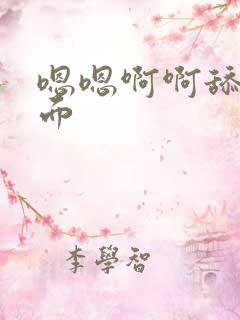 嗯嗯啊啊舔
而
李學智